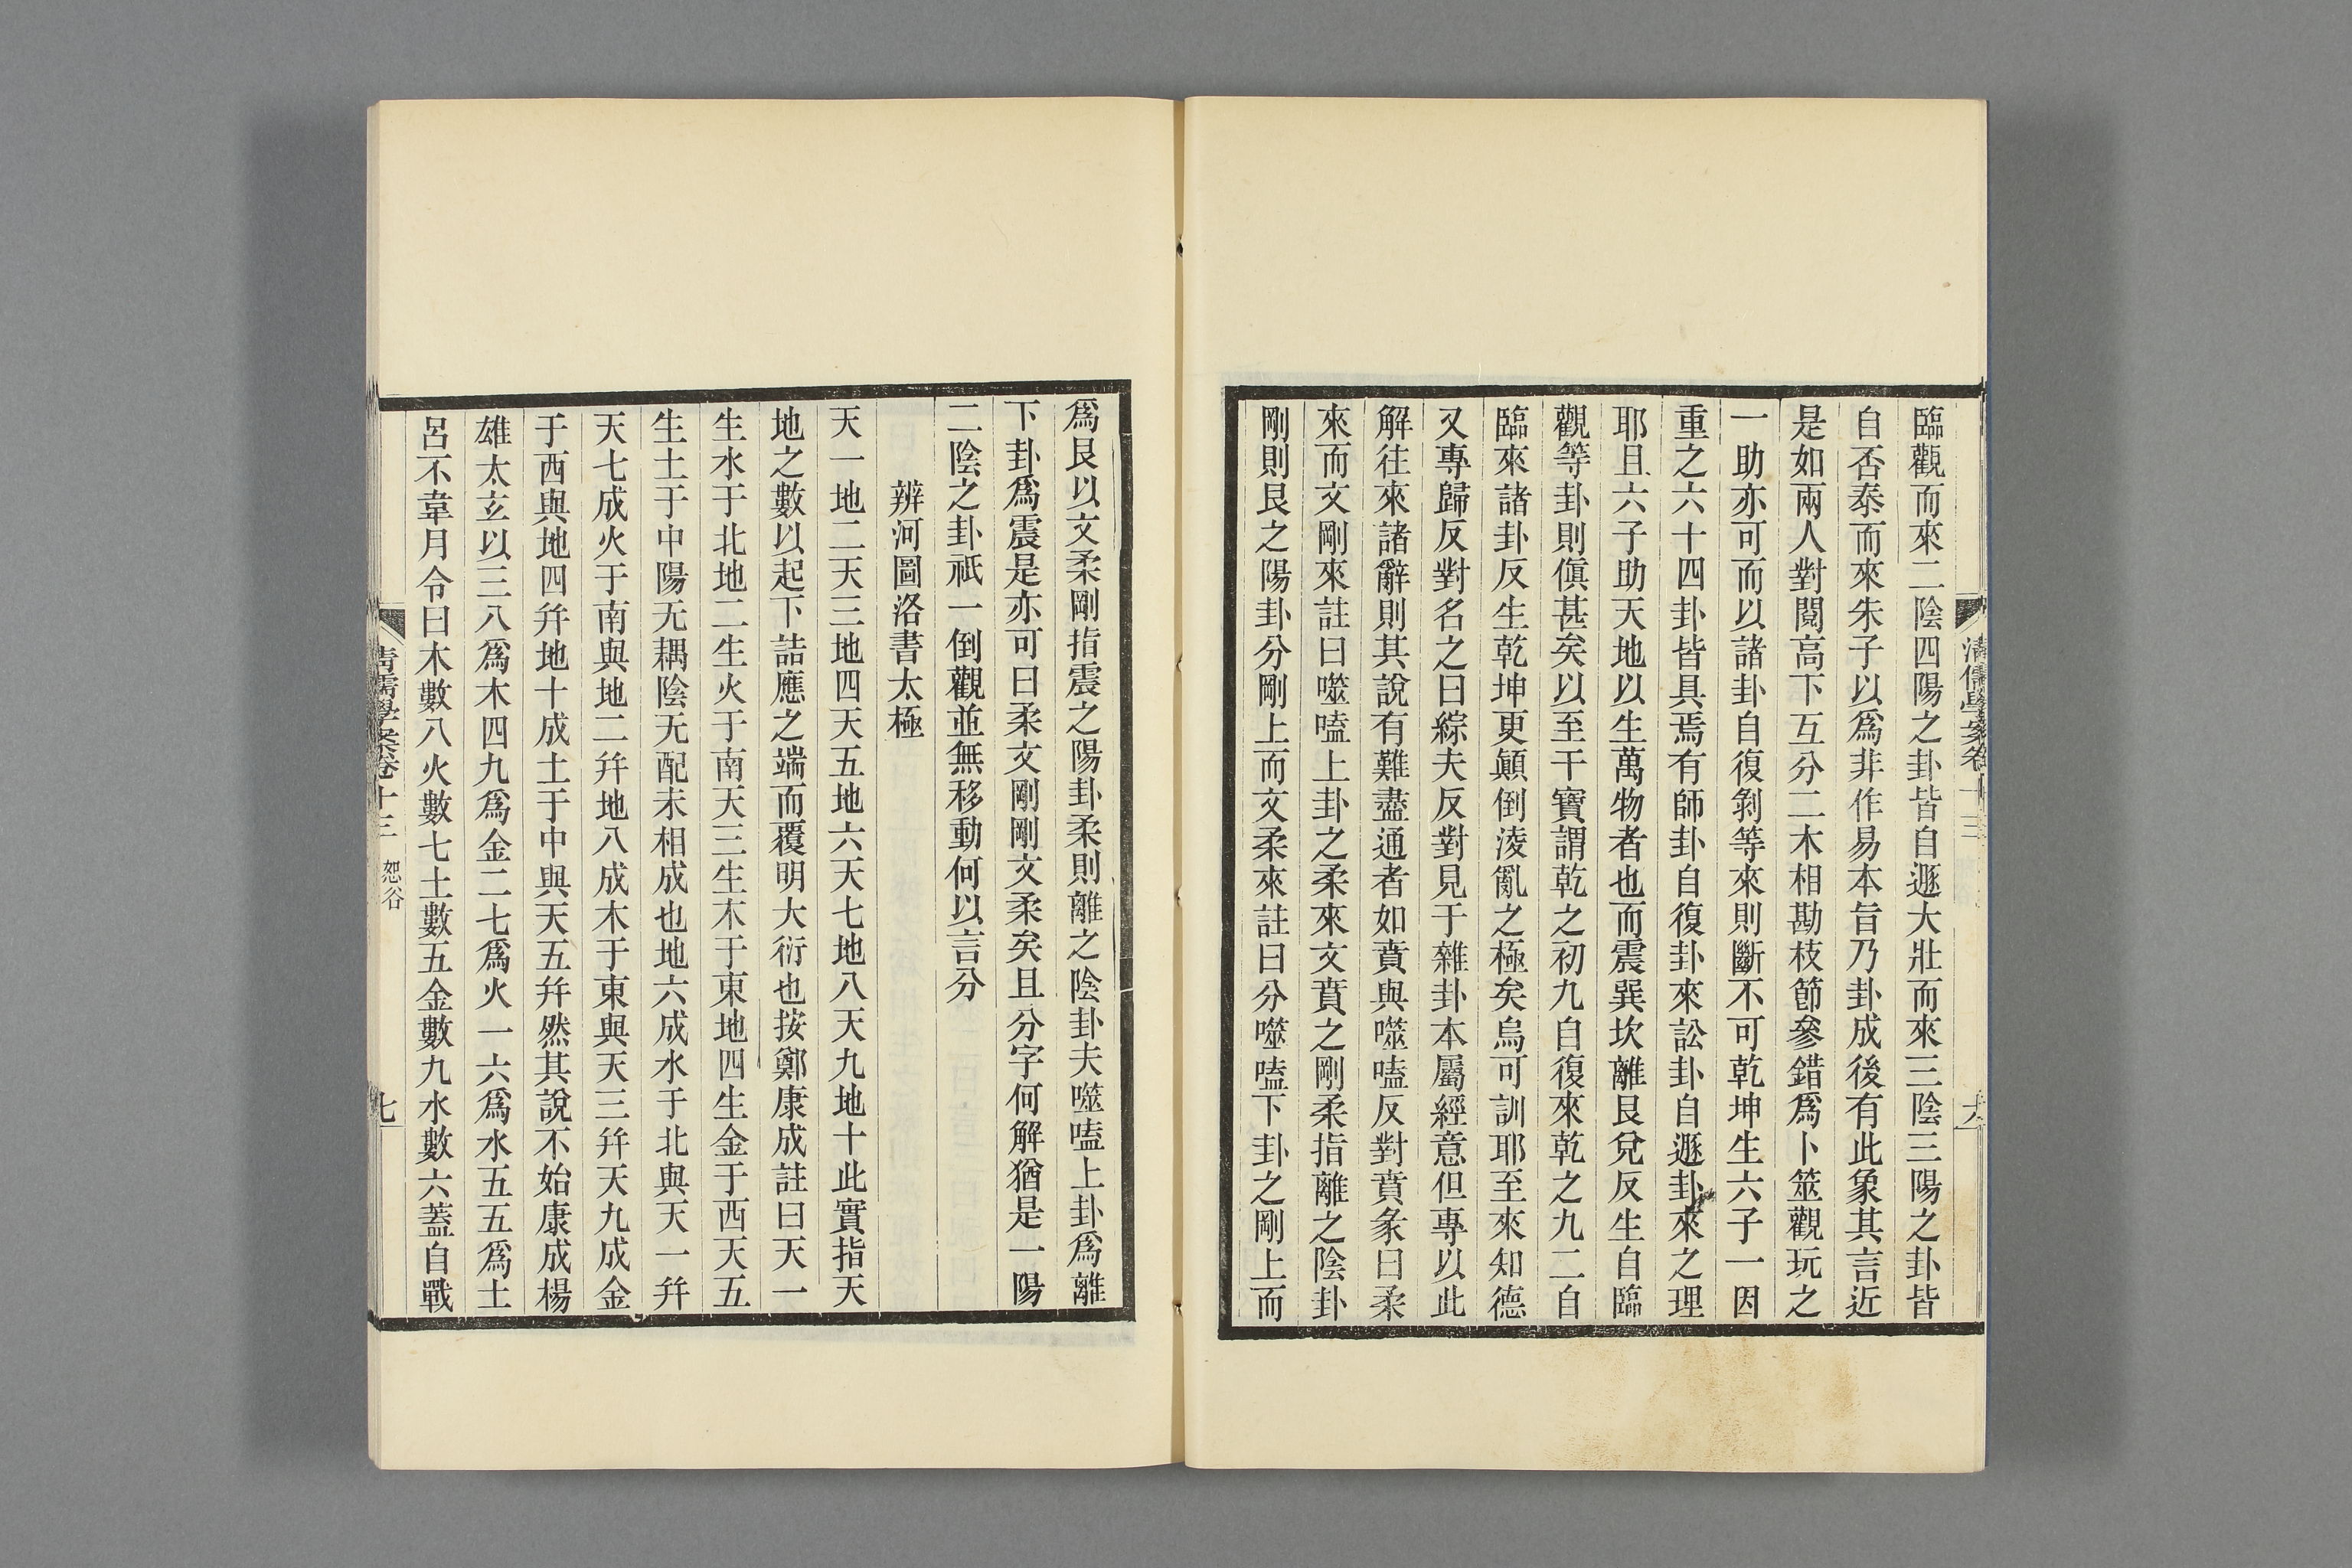 清儒學案卷十三
六
臨觀而來二陰四陽之卦皆自遯大壯而來三陰三陽之卦皆
自否泰而來朱子以爲非作易本旨乃卦成後有此象其言近
是如兩人對閱高下互分二木相勘枝節參錯爲卜筮觀玩之
一助亦可而以諸卦自復剝等來則斷不可乾坤生六子一因
重之六十四卦皆具焉有師卦自復卦來訟卦自遯卦來之理
耶且六子助天地以生萬物者也而震巽坎離艮兌反生自臨
觀等卦則傎甚矣以至干寶謂乾之初九自復來乾之九二自
臨來諸卦反生乾坤更顚倒淩亂之極矣烏可訓耶至來知德
又專歸反對名之曰綜夫反對見于雜卦本屬經意但專以此
解往來諸辭則其說有難盡通者如賁與噬嗑反對賁彖曰柔
來而文剛來註曰噬嗑上卦之柔來文賁之剛柔指離之陰卦
剛則艮之陽卦分剛上而文柔來註曰分噬嗑下卦之剛上而
爲艮以文柔剛指震之陽卦柔則離之陰卦夫噬嗑上卦爲離
下卦爲震是亦可曰柔文剛剛文柔矣且分字何解猶是一陽
二陰之卦祇一倒觀並無移動何以言分
辨河圖洛書太極
天一地二天三地四天五地六天七地八天九地十此實指天
地之數以起下詰應之端而覆明大衍也按鄭康成註曰天一
生水于北地二生火于南天三生木于東地四生金于西天五
生土于中陽无耦陰无配未相成也地六成水于北與天一幷
天七成火于南與地二幷地八成木于東與天三幷天九成金
于西與地四幷地十成土于中與天五幷然其說不始康成楊
雄太玄以三八爲木四九爲金二七爲火一六爲水五五爲土
呂不韋月令曰木數八火數七土數五金數九水數六蓋自戰
清儒學案卷十三 恕谷
七